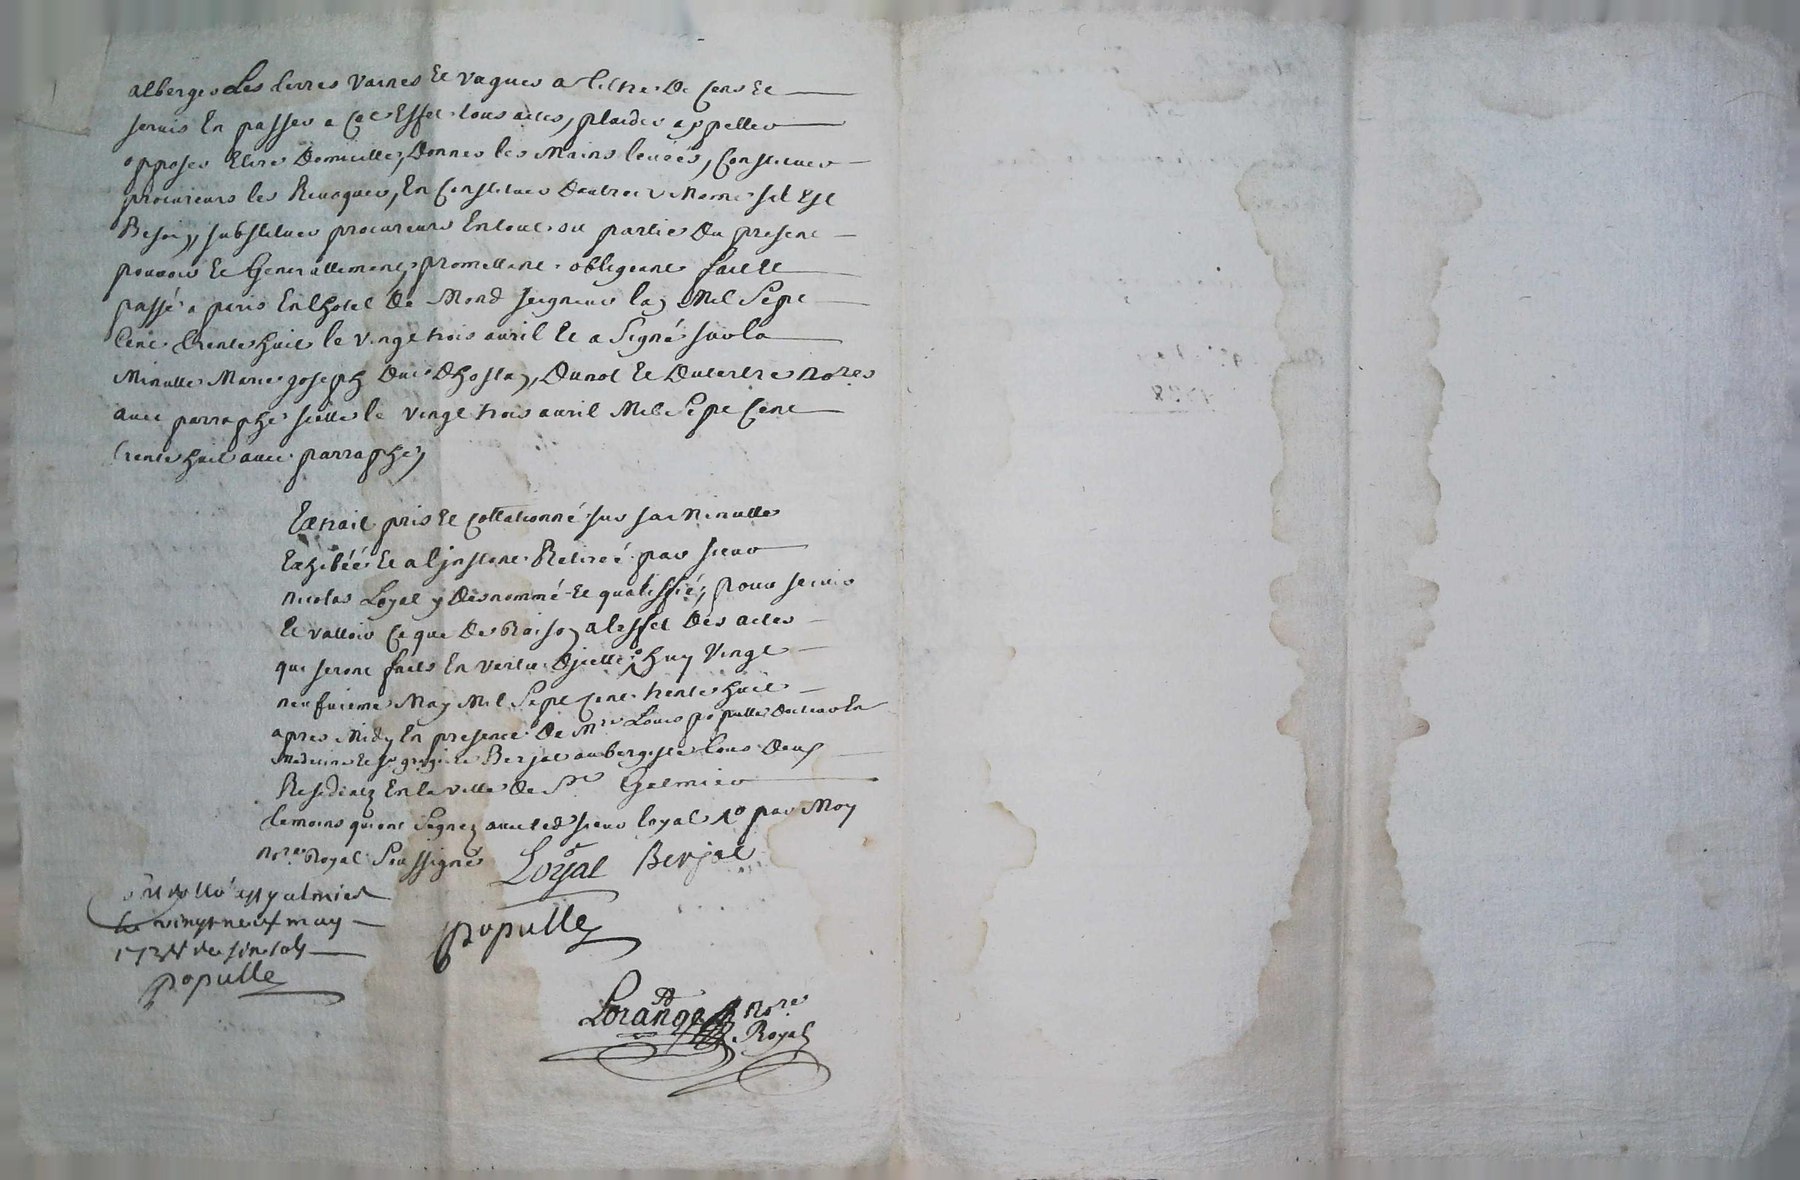 alberger Les terres vaines Et vagues a tiltre De Cens Et
servis En passer a Cet Effet tous actes, plaider appeller
opposer Elire Domicille, Donner les Mains levées, Constituer
procureurs les Revoquer, En Constituer Dautres
Besoin, substituer procureurs En tout ou partie Du present
pouvoir Et Generallement, promettant obligeant fait Et
passé a paris En lhotel De Mond Seigneur lan Mil Sept
Cent trente huit le vingt trois avril Et a Signé sur la
Minutte Marie Joseph Duc Dhostun, Dunot Et Dutertre nores
avec parraphe scellé le vingt trois avril Mil Sept Cent
trente huit avec parraphe,
Extrait pris Et Collationné sur sa Minutte
Exhibée Et a linstant Retirée par sieur
Nicolas Loyal y Desnommé Et qualiffié, pour servir
Et valloir Ce que De Raison a leffet Des actes
qui seront faits En vertu Dicelle, Ce huy vingt
neufvieme May Mil Sept Cent trente huit
apres Midy En presence De Mre Louis populle Docteur En
Medecine Et Sr Berjat aubergiste tous Deux
Residentz En la ville De St Galmier
temoins qui ont Signez avec led sieur loyal Et par Moy
nore Royal Soussigné
Loyal Berjat
populle
Controllé a St galmier
le vingt neuf may
1738
populle
Lorange Nore
Royal